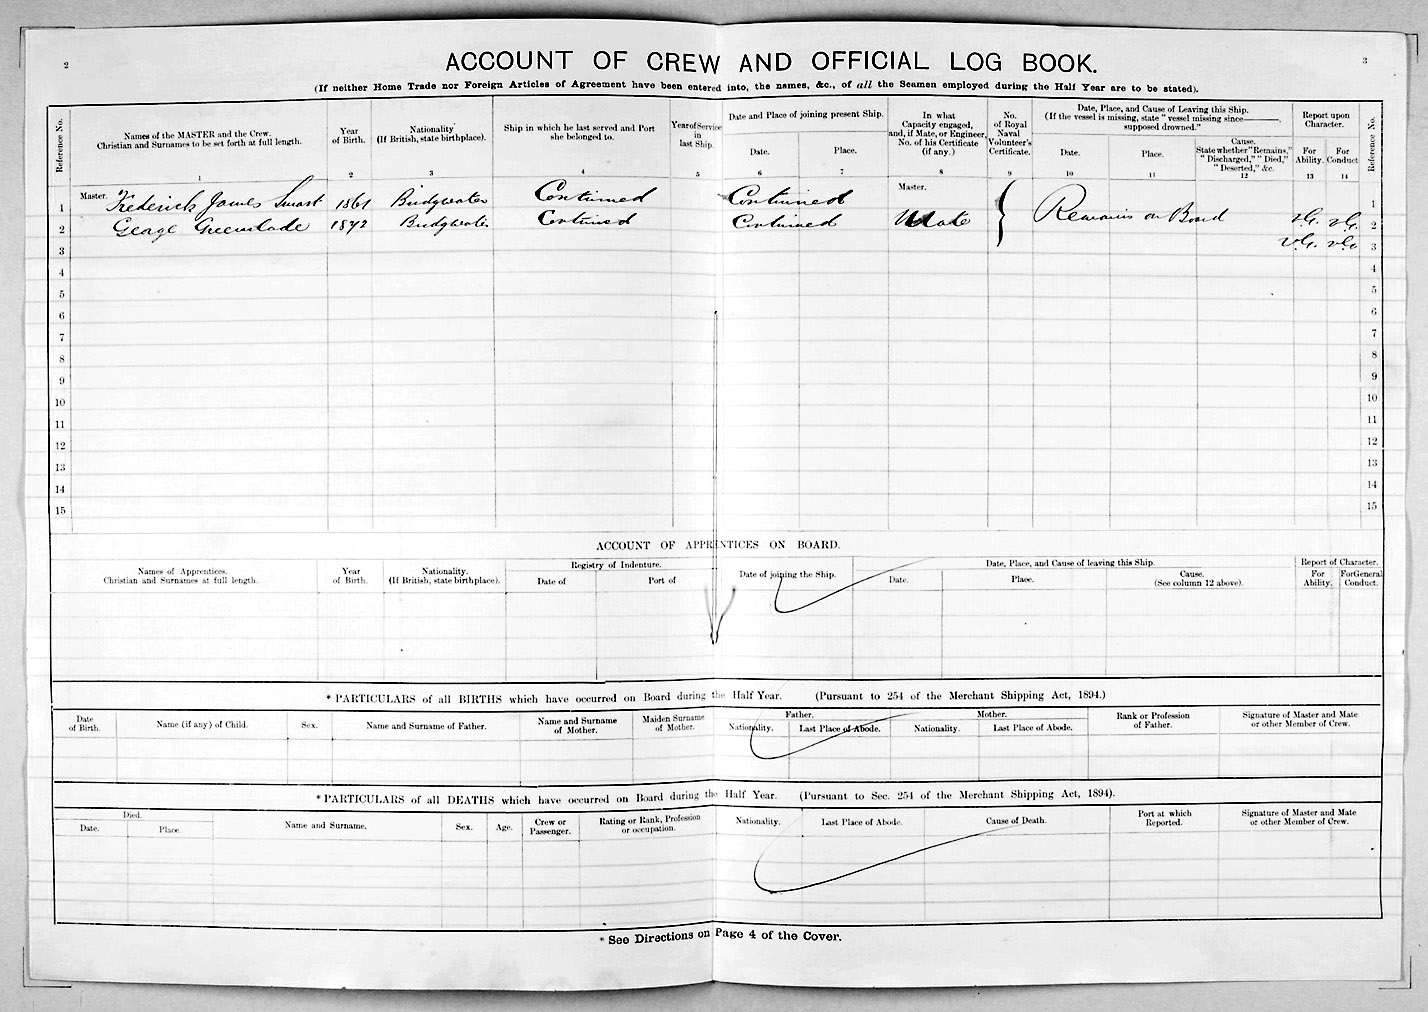 2
3
ACCOUNT OF CREW AND OFFICIAL LOG BOOK.
(If neither Home Trade nor Foreign Articles of Agreement have been entered into, the names, &c., of all the Seamen employed during the Half Year are to be stated).
Reference No.
Names of the MASTER and the Crew.
Christian and Surnames to be set forth at full length.
1
Year
of Birth.
2
Nationality
(If British, state birthplace).
3
Ship in which he last served and Port
she belonged to.
4
Year of Service
in
last Ship.
5
Date and Place of joining present Ship.
Date.
6
Place.
7
In what
Capacity engaged,
and, if Mate, or Engineer,
No. of his Certificate
(if any.)
8
No.
of Royal
Naval
Volunteer's
Certificate.
9
Date, Place, and Cause of Leaving this Ship.
(If the vessel is missing, state "vessel missing since———,
supposed drowned."
Date.
10
Place.
11
Cause.
State whether "Remains,"
"Discharged," "Died,"
"Deserted," &c.
12
Report upon
Character.
For
Ability.
13
For
Conduct
14
Reference No.
1 Master. Frederick James Smart 1861 Bridgwater Continued Continued Master. 1
2 George Greenslade 1872 Bridgwater Continued Continued Mate Remains on Board v.G. v.G. 2
3 v.G. v.G. 3
4 4
5 5
6 6
7 7
8 8
9 9
10 10
11 11
12 12
13 13
14 14
15 15
ACCOUNT OF APPRENTICES ON BOARD.
Names of Apprentices.
Christian and Surnames at full length.
Year
of Birth.
Nationality.
(If British, state birthplace).
Registry of Indenture.
Date of
Port of
Date of joining the Ship.
Date, Place, and Cause of leaving this Ship.
Date.
Place.
Cause.
(See column 12 above).
Report of Character.
For
Ability.
For General
Conduct.
* PARTICULARS of all BIRTHS which have occurred on Board during the Half Year. (Pursuant to 254 of the Merchant Shipping Act, 1894.)
Date
of Birth.
Name (if any) of Child.
Sex.
Name and Surname of Father.
Name and Surname
of Mother.
Maiden Surname
of Mother.
Father.
Nationality.
Last Place of Abode.
Mother.
Nationality.
Last Place of Abode.
Rank or Profession
of Father.
Signature of Master and Mate
or other Member of Crew.
* PARTICULARS of all DEATHS which have occurred on Board during the Half Year. (Pursuant to Sec. 254 of the Merchant Shipping Act, 1894).
Died.
Date.
Place.
Name and Surname.
Sex.
Age.
Crew or
Passenger.
Rating or Rank, Profession
or occupation.
Nationality.
Last Place of Abode.
Cause of Death.
Port at which
Reported.
Signature of Master and Mate
or other Member of Crew.
* See Directions on Page 4 of the Cover.